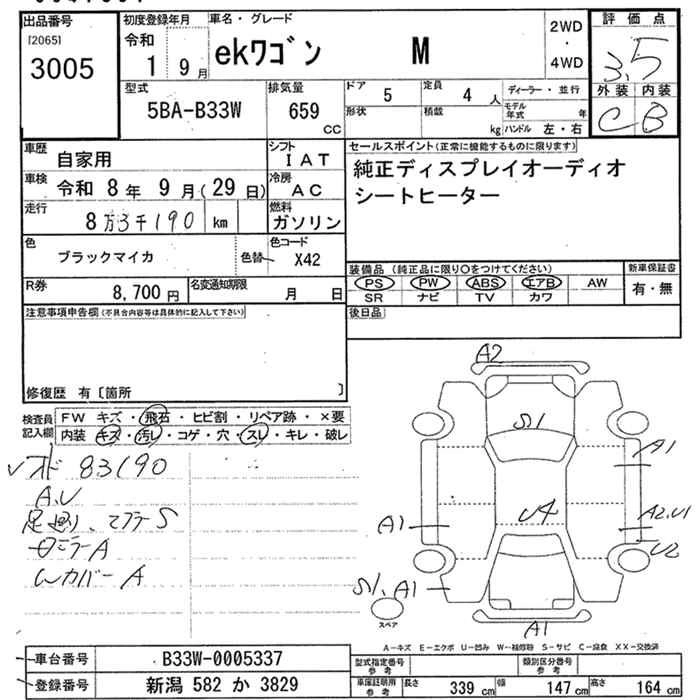 出品番号
[2065]
3005
初度登録年月
令和
1 9月
車名・グレード
ekワゴン M
2WD
・
4WD
評価点
3.5
外装 内装
C B
型式
5BA-B33W
排気量
659
CC
ドア
5
定員
4 人
ディーラー・並行
形状
積載
kg
モデル年式 年
ハンドル 左・右
車歴
自家用
シフト
I A T
車検
令和 8年 9月(29日)
冷房
A C
走行
8万3千190 km
燃料
ガソリン
色
ブラックマイカ
色替
色コード
X42
R券
8,700 円
名変通知期限
月 日
セールスポイント(正常に機能するものに限ります)
純正ディスプレイオーディオ
シートヒーター
装備品 (純正品に限り○をつけてください)
PS PW ABS エアB AW
SR ナビ TV カワ
新車保証書
有・無
後日品
注意事項申告欄(不具合内容等は具体的に記入して下さい)
修復歴 有〔箇所 〕
検査員
記入欄
FW キズ・飛石・ヒビ割・リペア跡・×要
内装 キズ・汚レ・コゲ・穴・スレ・キレ・破レ
83190
A.U
足廻り、マフラーS
ミラーA
WカバーA
A2
S1
A1
U4
A2.U1
A1
U2
S1, A1
スペア
A1
A-キズ E-エクボ U-凹み W-補修跡 S-サビ C-腐食 XX-交換済
車台番号
B33W-0005337
登録番号
新潟 582 か 3829
型式指定番号
参考
類別区分番号
参考
車庫証明用
参考
長さ 339 cm 幅 147 cm 高さ 164 cm